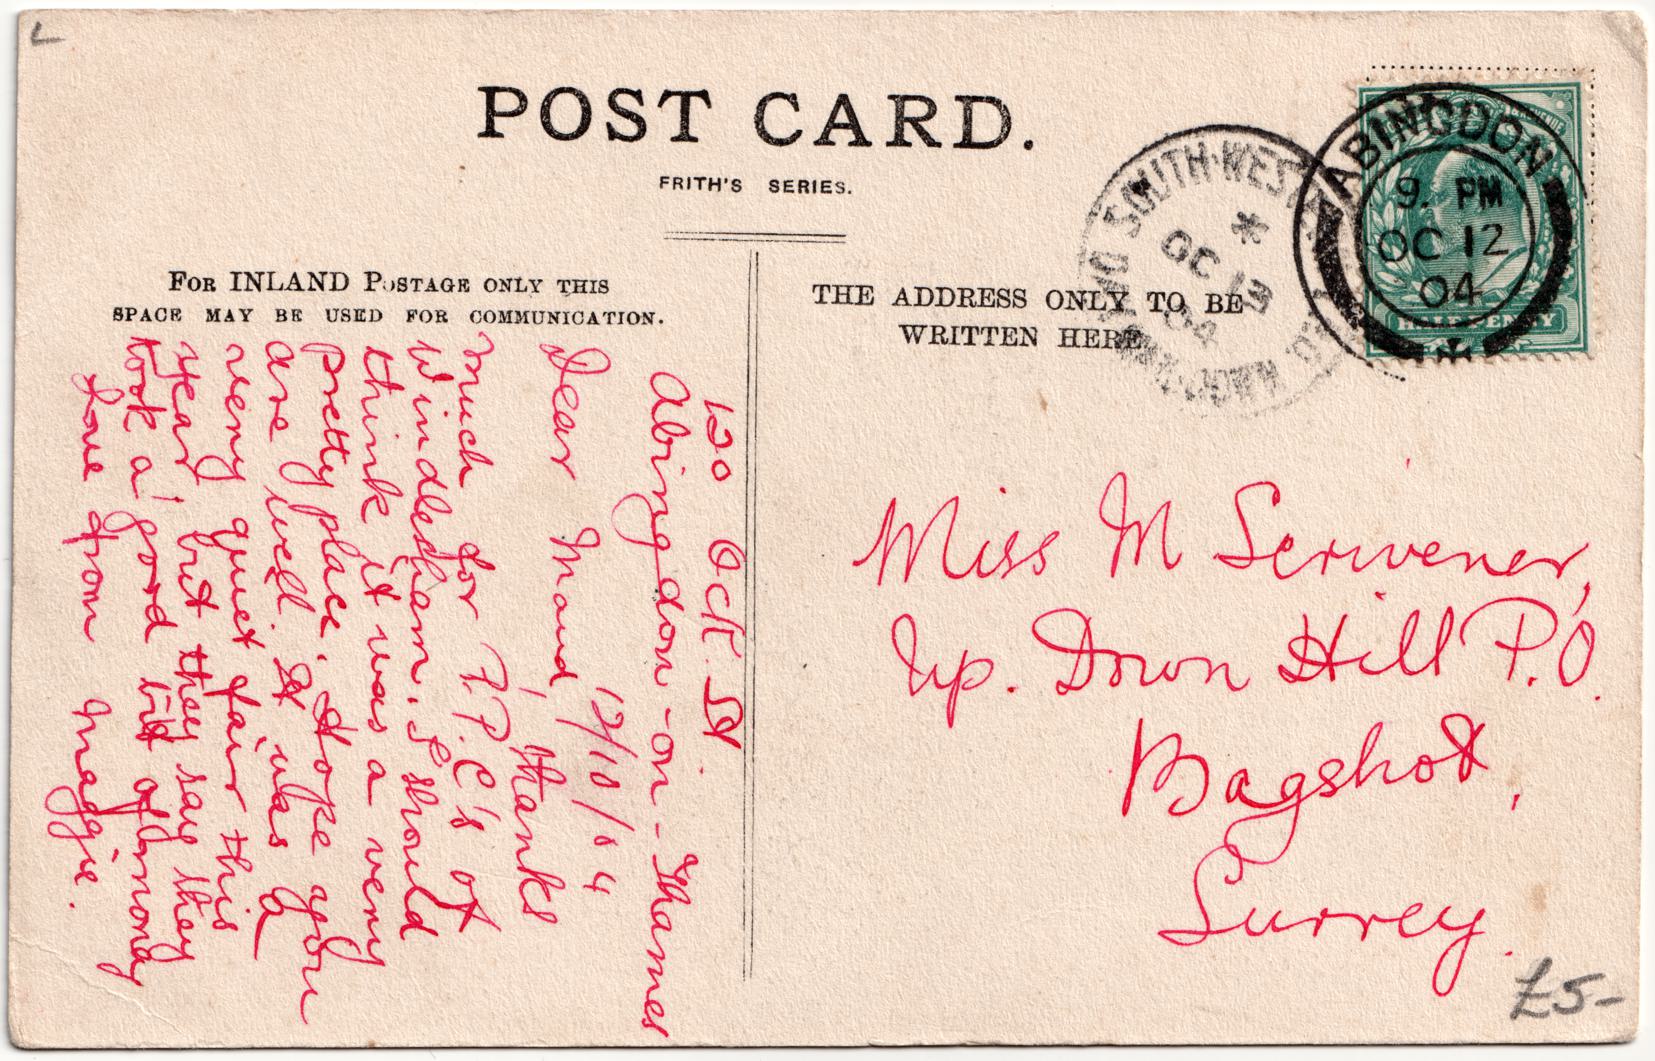 POST CARD.
FRITH'S SERIES.
FOR INLAND POSTAGE ONLY THIS
SPACE MAY BE USED FOR COMMUNICATION.
THE ADDRESS ONLY TO BE
WRITTEN HERE
ABINGDON
9. PM
OC 12
04
HALFPENNY
SOUTH-WEST
OC 13
04
120 Ock. St.
Abingdon-on-Thames
12/10/04
Dear Maud, thanks
much for P.P.C's of
Windlesham. I should
think it was a very
pretty place. Hope you
are well. It was a
very quiet fair this
year, but they say they
took a good bit of money
Love from Maggie.
Miss M Scrivener,
Up. Down Hill P.O.
Bagshot,
Surrey.
£5-